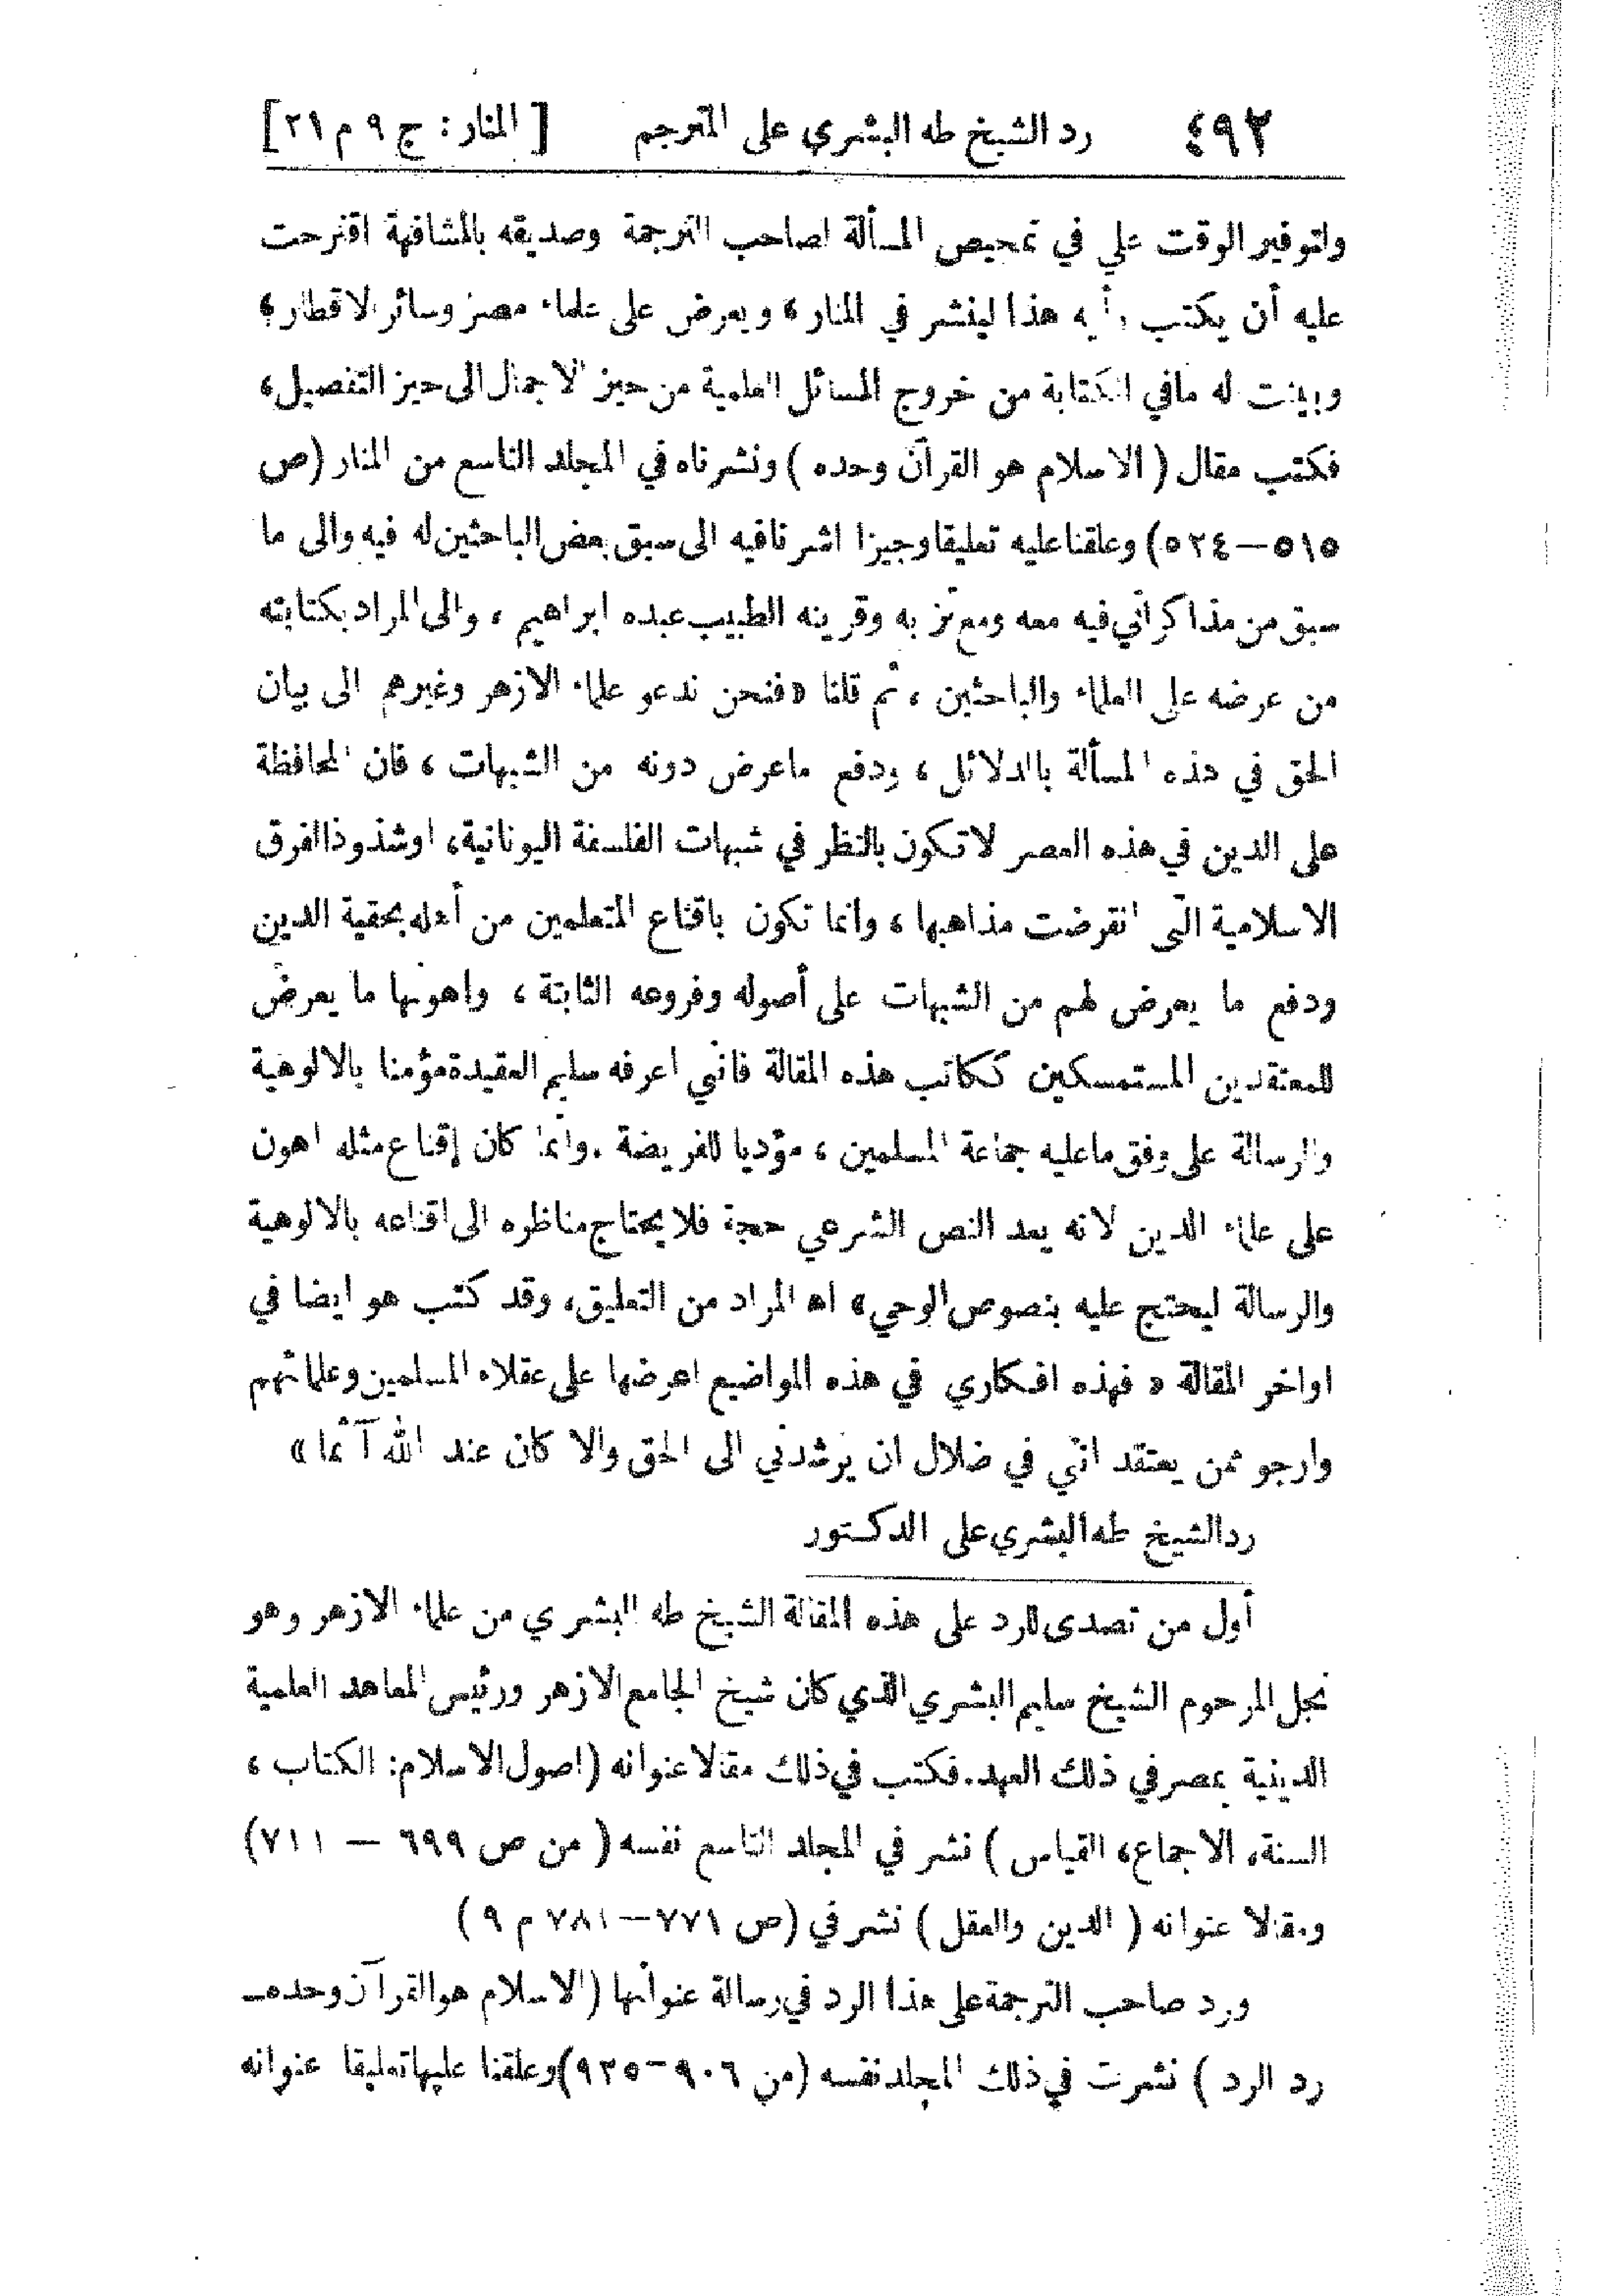 ٤٩٢ رد الشيخ طه البشري على المترجم [ المنار : ج ٩ م ٢١ ]
ولتوفير الوقت علي في تمحيص المسألة لصاحب الترجمة وصديقه بالمشافهة اقترحت
عليه أن يكتب رأيه هذا لينشر في المنار ، ويعرض على علماء مصر وسائر الاقطار ،
وبينت له مافي الكتابة من خروج المسائل العلمية من حيز الاجمال الى حيز التفصيل ،
فكتب مقال ( الاسلام هو القرآن وحده ) ونشرناه في المجلد التاسع من المنار (ص
٥١٥—٥٢٤) وعلقنا عليه تعليقا وجيزا اشرنا فيه الى سبق بعض الباحثين له فيه والى ما
سبق من مذاكراتي فيه معه ومع تربه وقرينه الطبيب عبده ابراهيم ، والى المراد بكتابته
من عرضه على العلماء والباحثين ، ثم قلنا « فنحن ندعو علماء الازهر وغيرهم الى بيان
الحق في هذه المسألة بالدلائل ، ودفع ماعرض دونه من الشبهات ، فان المحافظة
على الدين في هذه العصر لا تكون بالنظر في شبهات الفلسفة اليونانية ، او شذوذ الفرق
الاسلامية التي انقرضت مذاهبها ، وانما تكون باقناع المتعلمين من أهله بحقية الدين
ودفع ما يعرض لهم من الشبهات على أصوله وفروعه الثابتة ، واهونها ما يعرض
للمعتقدين المستمسكين ككاتب هذه المقالة فاني اعرفه سليم العقيدة مؤمنا بالالوهية
والرسالة على وفق ماعليه جماعة المسلمين ، مؤديا للفريضة . وانما كان إقناع مثله اهون
على علماء الدين لانه يعد النص الشرعي حجة فلا يحتاج مناظره الى اقناعه بالالوهية
والرسالة ليحتج عليه بنصوص الوحي » اه المراد من التعليق ، وقد كتب هو ايضا في
اواخر المقالة « فهذه افكاري في هذه المواضيع اعرضها على عقلاء المسلمين وعلمائهم
وارجو ممن يعتقد اني في ضلال ان يرشدني الى الحق والا كان عند الله آثما »
رد الشيخ طه البشري على الدكتور
أول من تصدى للرد على هذه المقالة الشيخ طه البشري من علماء الازهر وهو
نجل المرحوم الشيخ سليم البشري الذي كان شيخ الجامع الازهر ورئيس المعاهد العلمية
الدينية بمصر في ذلك العهد . فكتب في ذلك مقالا عنوانه (اصول الاسلام : الكتاب ،
السنة ، الاجماع ، القياس ) نشر في المجلد التاسع نفسه ( من ص ٦٩٩ — ٧١١)
ومقالا عنوانه ( الدين والعقل ) نشر في (ص ٧٧١—٧٨١ م ٩ )
ورد صاحب الترجمة على هذا الرد في رسالة عنوانها (الاسلام هو القرآن وحده—
رد الرد ) نشرت في ذلك المجلد نفسه (من ٩٠٦—٩٢٥) وعلقنا عليها تعليقا عنوانه